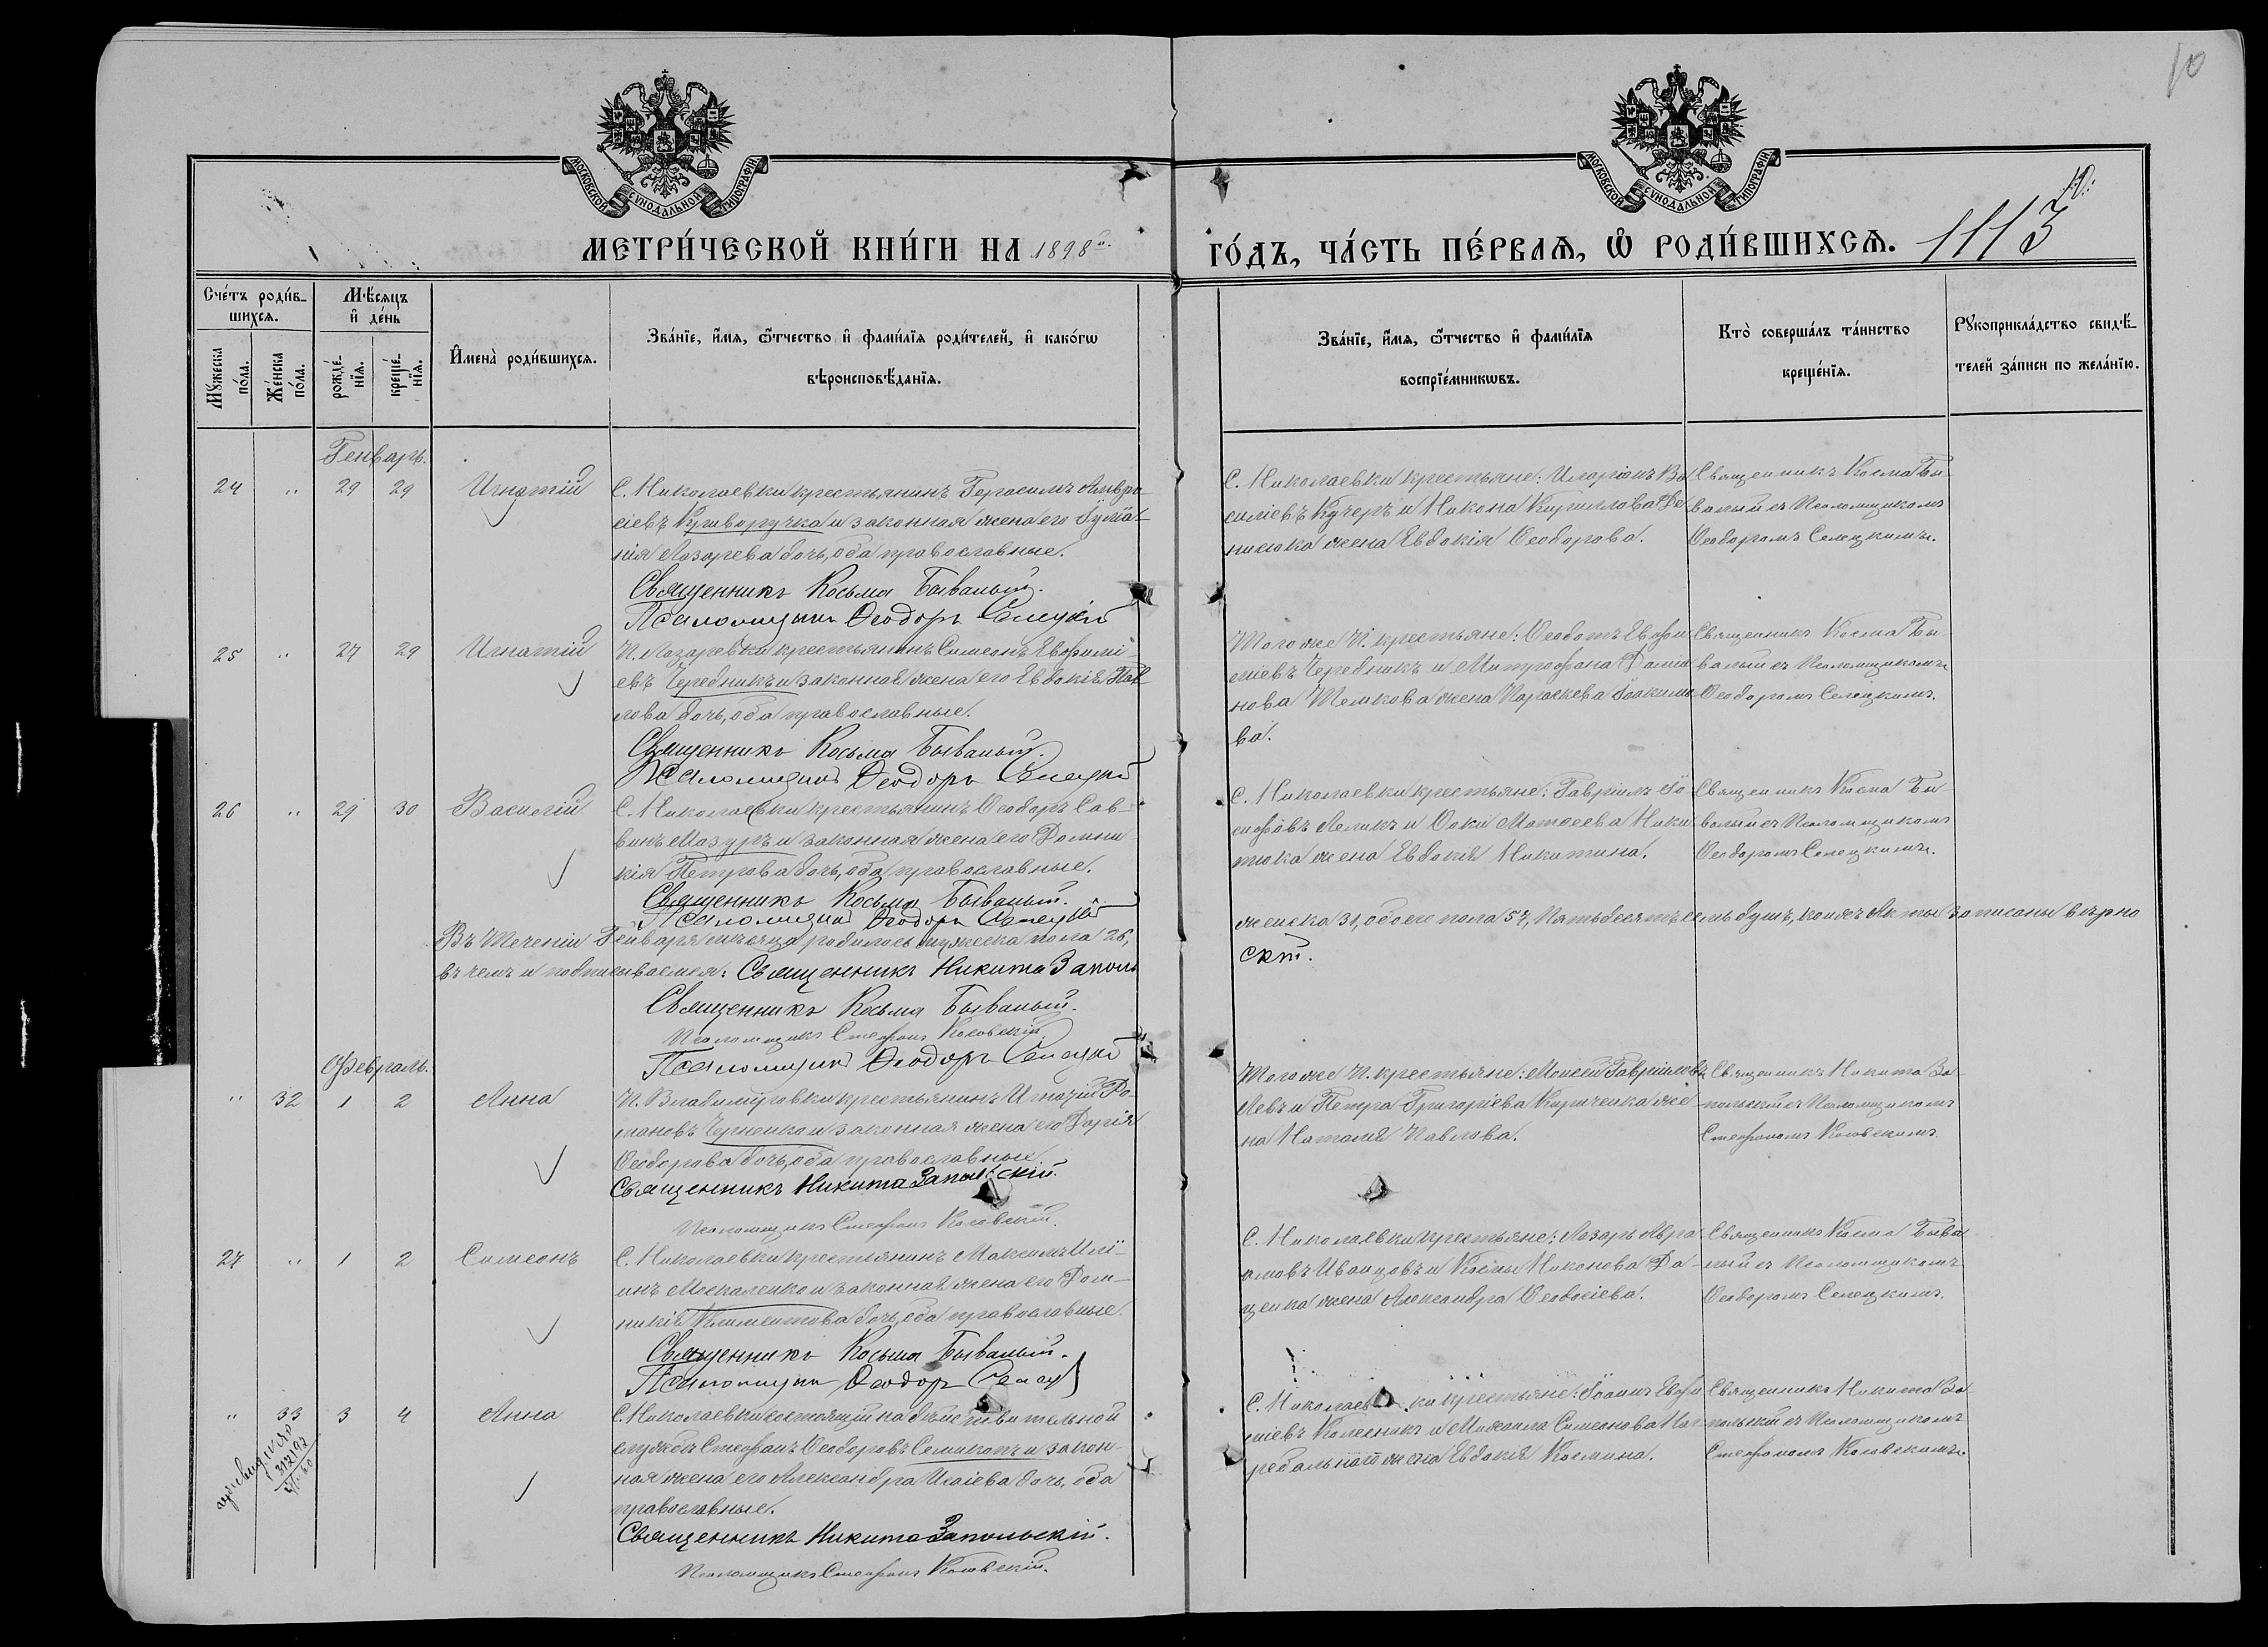 10
МОСКОВСКОЙ СѴНОДАЛЬНОЙ ТИПОГРАФІИ
МОСКОВСКОЙ СѴНОДАЛЬНОЙ ТИПОГРАФІИ
МЕТРИ́ЧЕСКОЙ КНИ́ГИ НА 1898й.
ГО́ДЪ, ЧА́СТЬ ПЕ́РВАѦ, Ѡ РОДИ́ВШИХСѦ. 1113
Сче́тъ роди́в-
шихсѧ.
Мꙋ́жеска по́ла.
Же́нска по́ла.
Мѣ́сяцъ и҆ де́нь
рожде́-нїѧ.
креще́-нїѧ.
И҆мена̀ роди́вшихсѧ.
Зва́нїе, и҆́мѧ, ѻ҆́тчество и҆ фами́лїѧ роди́телей, и҆ како́гѡ
вѣроисповѣ́данїѧ.
Зва́нїе, и҆́мѧ, ѻ҆́тчество и҆ фами́лїѧ
воспрїе́мникѡвъ.
Кто̀ соверша́лъ та́инство
креще́нїѧ.
Рꙋкоприкла́дство свидѣ́-
телей за́писи по жела́нїю.
Генварь.
24 " 29 29 Игнатій
С. Николаевки крестьянинъ Герасимъ Амвро-
сіевъ Криворучка и законная жена его Іуліа-
нія Лазарева дочь, оба православные.
Священникъ Косьма Бывалый.
Псаломщикъ Ѳеодоръ Селецкій
С. Николаевки крестьяне: Иларіонъ Ва-
силіевъ Кучеръ и Никона Кириллова Де-
нисюка жена Евдокія Ѳеодорова.
Священникъ Косма Бы-
валый съ Псаломщикомъ
Ѳеодоромъ Селецкимъ.
25 " 27 29 Игнатій
П. Лазаревки крестьянинъ Симеонъ Евѳимі-
евъ Чередникъ и законная жена его Евдокія Пав-
лова дочь, оба православные.
Священникъ Косьма Бывалый.
Псаломщикъ Ѳеодоръ Селецкій
Того же П. крестьяне: Ѳеодотъ Евѳи-
міевъ Чередникъ и Митрофана Даміа-
нова Шемкова жена Параскева Іоакимо-
ва.
Священникъ Косма Бы-
валый съ Псаломщикомъ
Ѳеодоромъ Селецкимъ.
26 " 29 30 Василій
С. Николаевки крестьянинъ Ѳеодоръ Сав-
винъ Мазуръ и законная жена его Домни-
кія Петрова дочь, оба православные.
Священникъ Косьма Бывалый.
Псаломщикъ Ѳеодоръ Селецкій
С. Николаевки крестьяне: Гавріилъ Іо-
сифовъ Леликъ и Ѳоки Матѳеева Ники-
тюка жена Евдокія Никитина.
Священникъ Косма Бы-
валый съ Псаломщикомъ
Ѳеодоромъ Селецкимъ.
Въ теченіи Генваря мѣсяца родилось мужеска пола 26,
женска 31, обоего пола 57, Пятьдесятъ семь душъ, коихъ Акты записаны вѣрно
въ чемъ и подписываемся: Священникъ Никита Заполь
скій.
Священникъ Косьма Бывалый.
Псаломщикъ Стефанъ Косовскій
Псаломщикъ Ѳеодоръ Селецкій
Февраль.
" 32 1 2 Анна
П. Владиміровки крестьянинъ Игнатій Ро-
мановъ Черненко и законная жена его Дарія
Ѳеодорова дочь, оба православные.
Священникъ Никита Запольскій.
Псаломщикъ Стефанъ Косовскій.
Того же П. крестьяне: Моисей Гавріиловъ
Левъ и Петра Григоріева Кириченка же-
на Наталія Павлова.
Священникъ Никита За-
польскій съ Псаломщикомъ
Стефаномъ Косовскимъ.
27 " 1 2 Симеонъ
С. Николаевки крестьянинъ Максимъ Илі-
инъ Москаленко и законная жена его Дом-
никія Климентова дочь, оба православные.
Священникъ Косьма Бывалый.
Псаломщикъ Ѳеодоръ Селец
С. Николаевки крестьяне: Лазарь Авра-
амовъ Иванцовъ и Космы Никонова Да-
ценка жена Александра Ѳеодосіева.
Священникъ Косма Быва-
лый съ Псаломщикомъ
Ѳеодоромъ Селецкимъ.
" 33 3 4 Анна
С. Николаевки состоящій на дѣйствительной
службѣ Стефанъ Ѳеодоровъ Семикопъ и закон-
ная жена его Александра Исаіева дочь, оба
православные.
Священникъ Никита Запольскій.
Псаломщикъ Стефанъ Косовскій.
С. Николаевки крестьяне: Іоаннъ Евѳи-
міевъ Колесникъ и Михаила Симеонова
жена Евдокія Космина.
Священникъ Никита За-
польскій съ Псаломщикомъ
Стефаномъ Косовскимъ.